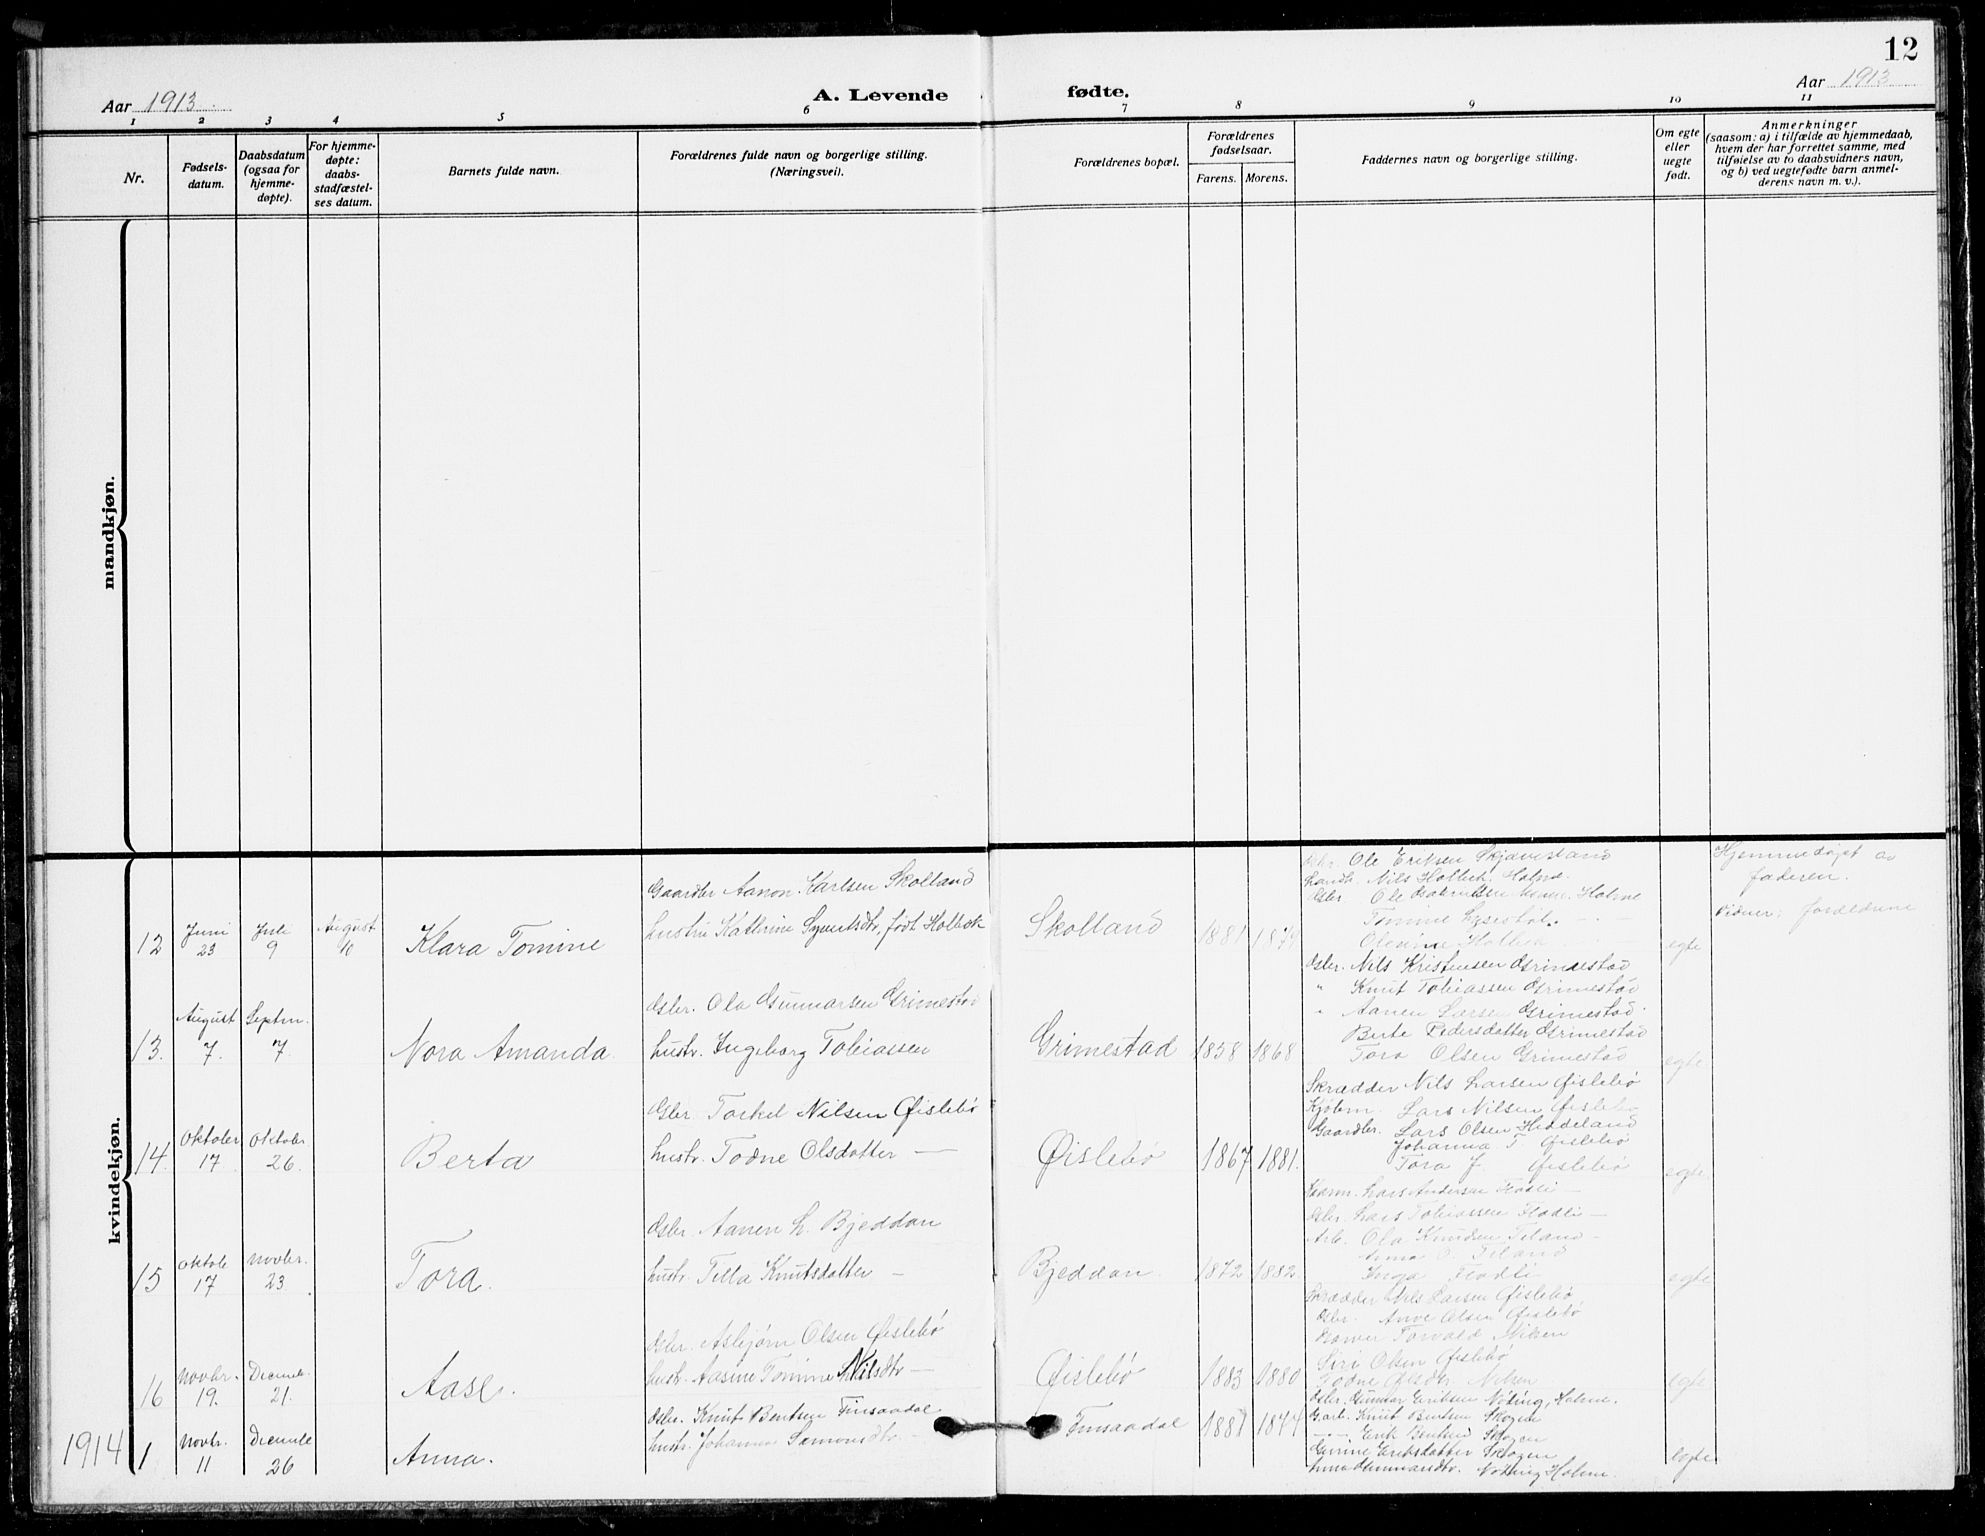 12
Aar 1913
A. Levende fødte.
Aar 1913
1 2 3 4 5 6 7 8 9 10 11
Nr.
Fødsels-
datum.
Daabsdatum
(ogsaa for
hjemme-
døpte).
For hjemme-
døpte:
daabs-
stadfæstel-
ses datum.
Barnets fulde navn.
Forældrenes fulde navn og borgerlige stilling.
(Næringsvei).
Forældrenes bopæl.
Forældrenes
fødselsaar.
Farens. Morens.
Faddernes navn og borgerlige stilling.
Om egte
eller
uegte
født.
Anmerkninger
(saasom: a) i tilfælde av hjemmedaab,
hvem der har forrettet samme, med
tilføielse av to daabsvidners navn,
og b) ved uegtefødte barn anmel-
derens navn m. v.).
mandkjøn.
kvindekjøn.
12
Juni
23
Juli
9
August
10
Klara Tomine
Gaardbr Aanon Karlsen Skolland
hustru Kathrine født Holbek
Skolland
1881 1874
Ole Eriksen Skjævesland
Nils Holbek Holme
Ole Holme
Tomine
Holbek
egte
Hjemmedøpt av
faderen.
Vidner: forældrene
13.
August
7.
Septm.
7.
Nora Amanda.
Gsbr. Ola Gunnarsen Grimestad
hustr. Ingeborg Tobiassen
Grimestad
1858 1868
Gsbr. Nils Kristensen Grimestad
" Knut Tobiassen Grimestad
" Aanen Larsen Grimestad.
Berte Pedersdatter Grimestad
Tora Olsen Grimestad
egte
14.
Oktober
17.
Oktober
26.
Berta
Gsbr. Torkel Nilsen Øislebø
hustr. Todne Olsdatter —
Øislebø
1867 1881.
Skrædder Nils Larsen Øislebø
Kjøbm. Lars Nilsen Øislebø
Gaardbr. Lars Olsen Heddeland
Johanna T. Øislebø
Tora J. Øislebø
egte
15
Oktob
17
Novbr.
23
Tora.
Gsbr. Aanen L. Bjeddan
hustr. Tella Knutsdatter —
Bjeddan.
1872 1882.
Lars Andersen Flodli —
Gsbr. Lars Tobiassen Flodli —
Arb. Ola Knudsen Tiland —
Anna O. Tiland
Inga Flodli
egte
16
Novbr.
19.
Decembr.
21.
Aase.
Gsbr. Asbjørn Olsen Øislebø
hustr. Aasine Tomine Nilsdtr —
Øislebø
1883 1880
Skrædder Nils Larsen Øislebø
Gsbr. Olsen Øislebø
Torvald Nilsen
Siri Olsen Øislebø
Todne Olsdtr. Nilsen
egte
1914 1
Novbr.
11
Decembe
26
Anna.
Gsbr. Knut Bentsen Finsaadal
hustr. Johanna —
Finsaadal
1881 1874
Gsbr. Gunnar Eriksen Nøding, Holme.
Garb. Knut Bentsen Skogen
— Erik Bentsen Skogen
Eriksdatter Skogen
Gunnarsdtr. Nøding Holme.
egte